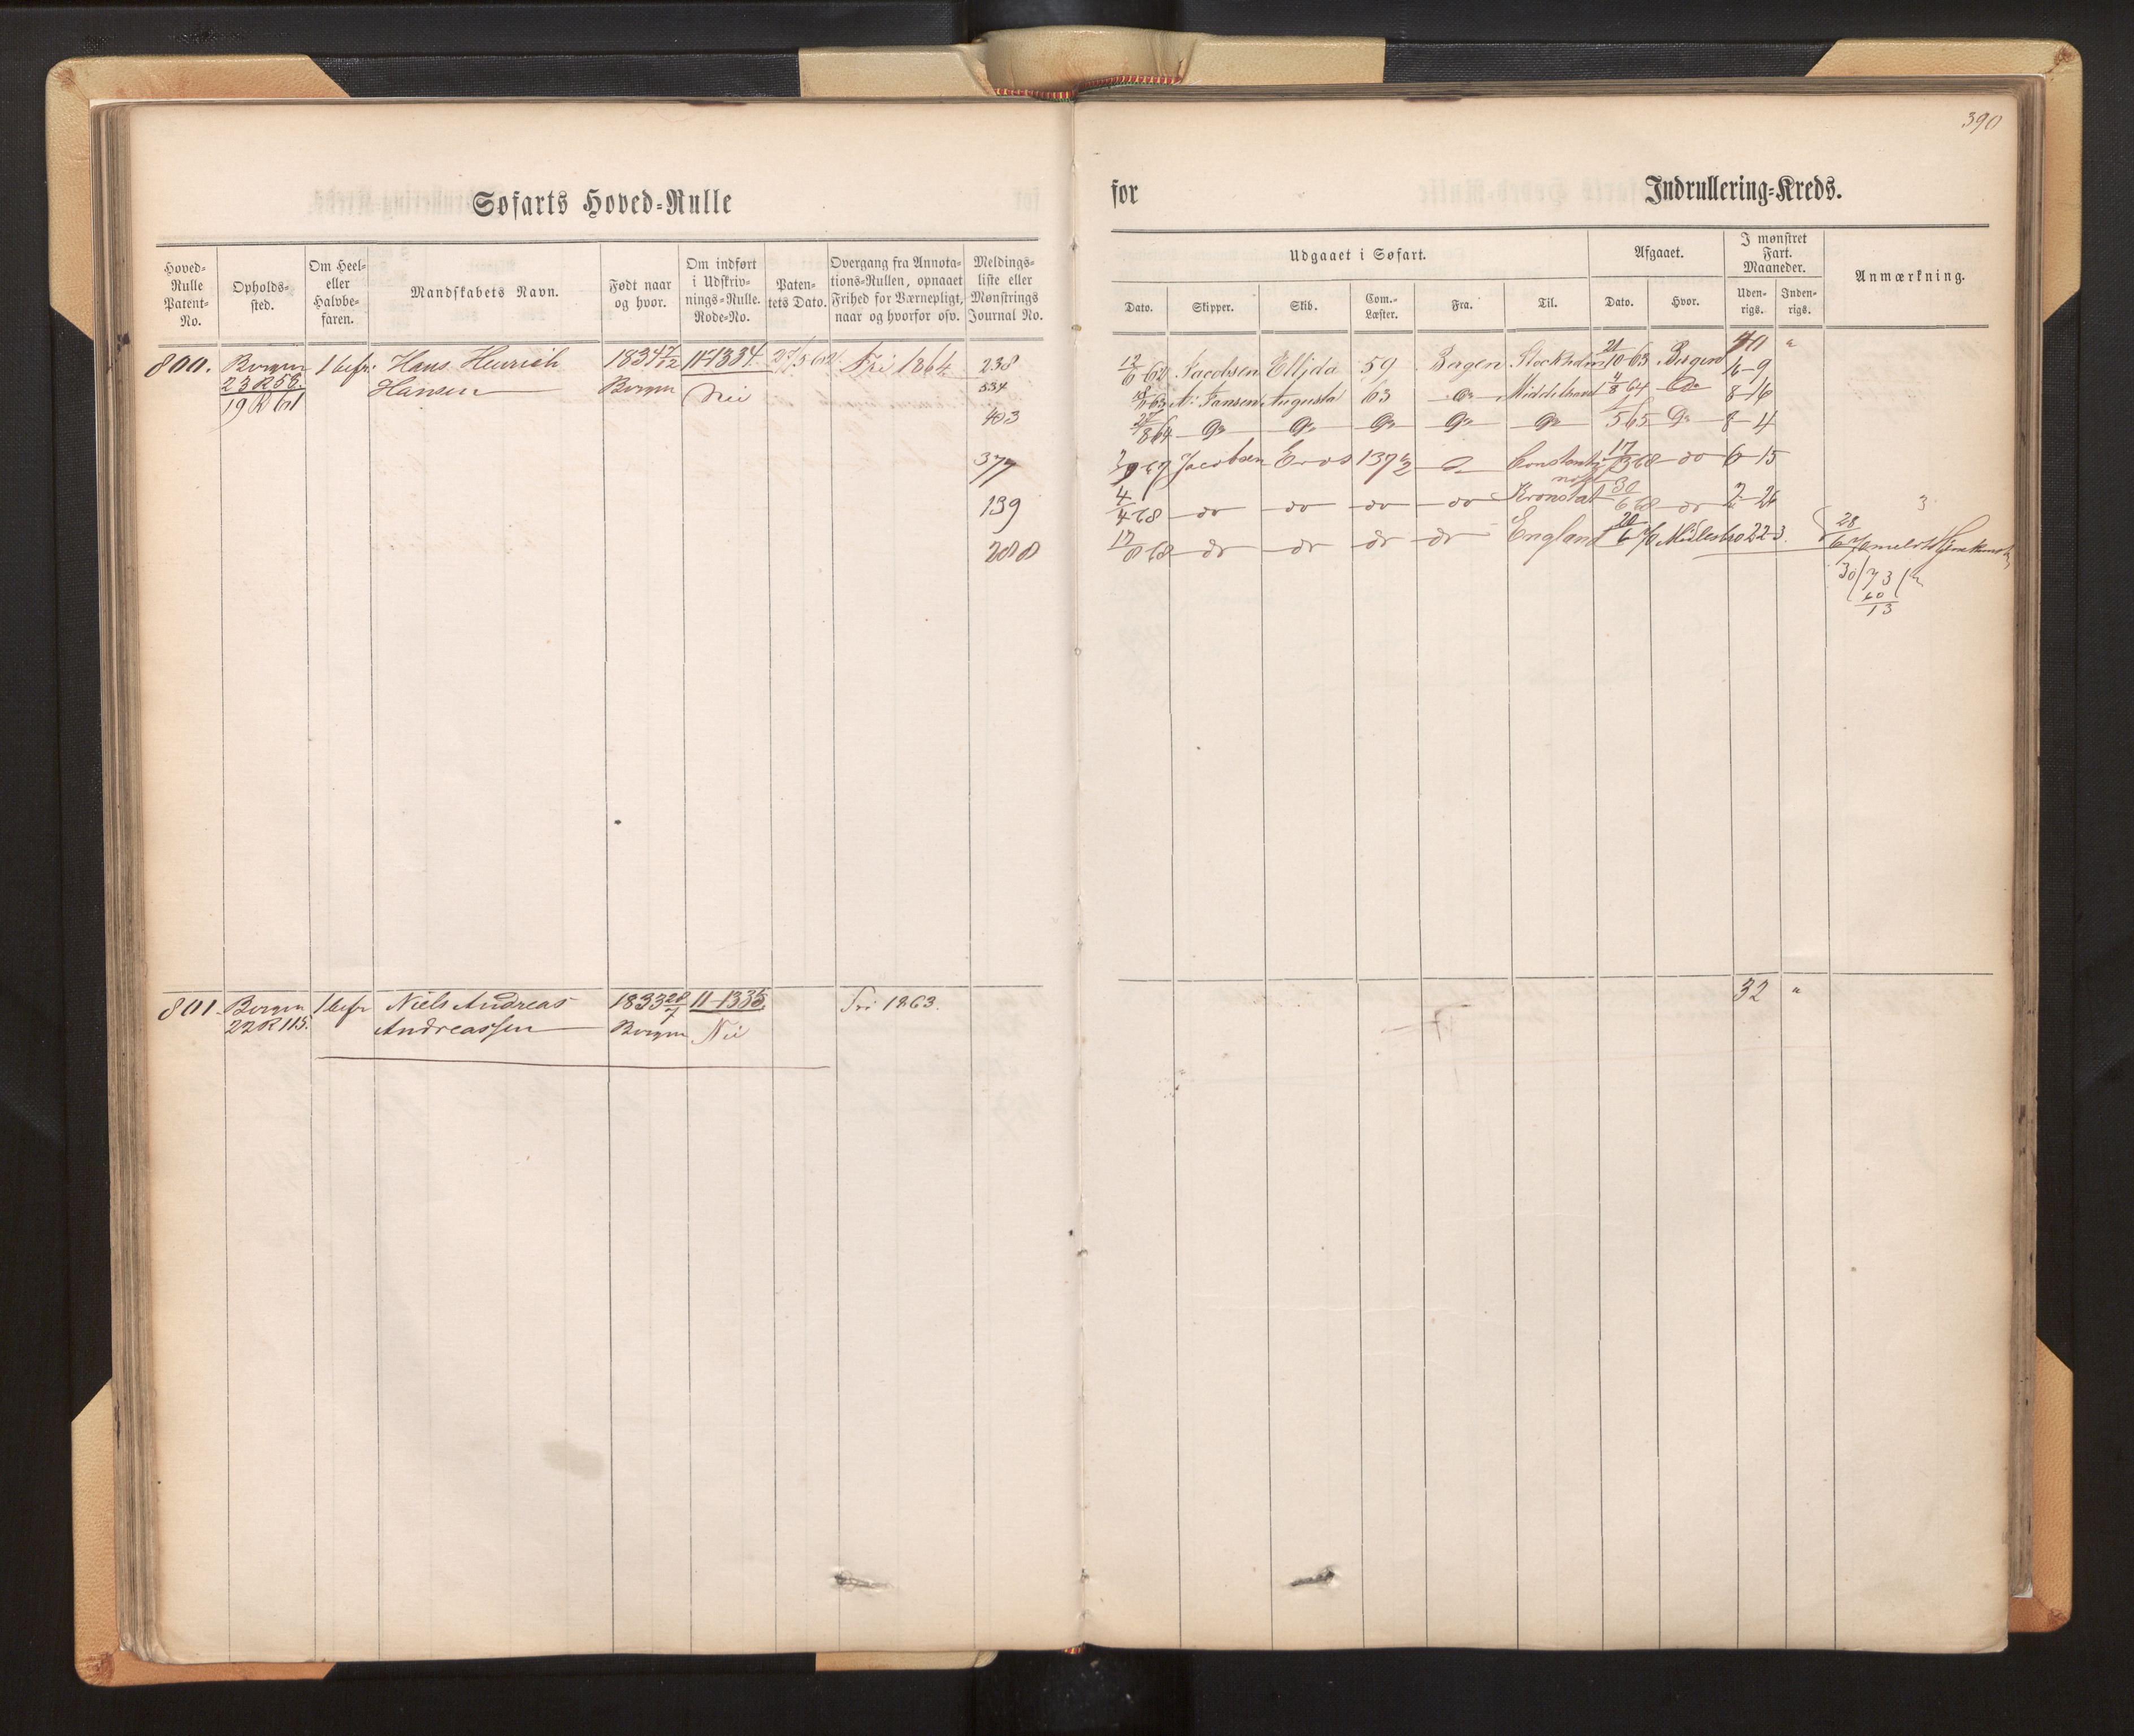 390
Søfarts Hoved-Rulle
for
Indrullering-Kreds.
Hoved-Rulle Patent-No.
Opholds-sted.
Om Heel- eller Halvbe-faren.
Mandskabets Navn.
Født naar og hvor.
Om indført i Udskriv-nings-Rulle. Rode-No.
Paten-tets Dato.
Overgang fra Annota-tions-Rullen, opnaaet Frihed for Værnepligt, naar og hvorfor osv.
Meldings-liste eller Mønstrings Journal No.
Udgaaet i Søfart.
Afgaaet.
I mønstret Fart. Maaneder.
Anmærkning.
Dato.
Skipper.
Skib.
Com.-Læster.
Fra.
Til.
Dato.
Hvor.
Uden-rigs.
Inden-rigs.
800. Bergen 1 befr: Hans Henrich 1834 7/12 11-1334. 27/5 62 Fri 1864 238
23 R 58 Hansen Bergen Nei 534
19 R 61
403
377
139
288
40 "
12/6 62 Jacobsen Ellida 59 Bergen Stockholm 21/10-63 Bergen 6-9
63 A: Jansen Augusta 63 Do Middelhavet 4/8 64 Do 8-16
27/8 64 Do Do Do Do Do 5 65 Do 8-4
67 Jacobsen Eros 137 1/2 Do Constanti nopel 17/3 68 do 6-15
4/4 68 do do do do Kronstat 30/6 68 do 2-26
3
17/8 68 do do do do England 20/6 70 22-3.
28/6 70
30/73/2
60
13
801. Bergen 1 befr Niels Andreas 1833 28/7 11-1335. Fri 1863.
22 R 115. Andreassen Bergen Nei
32 "